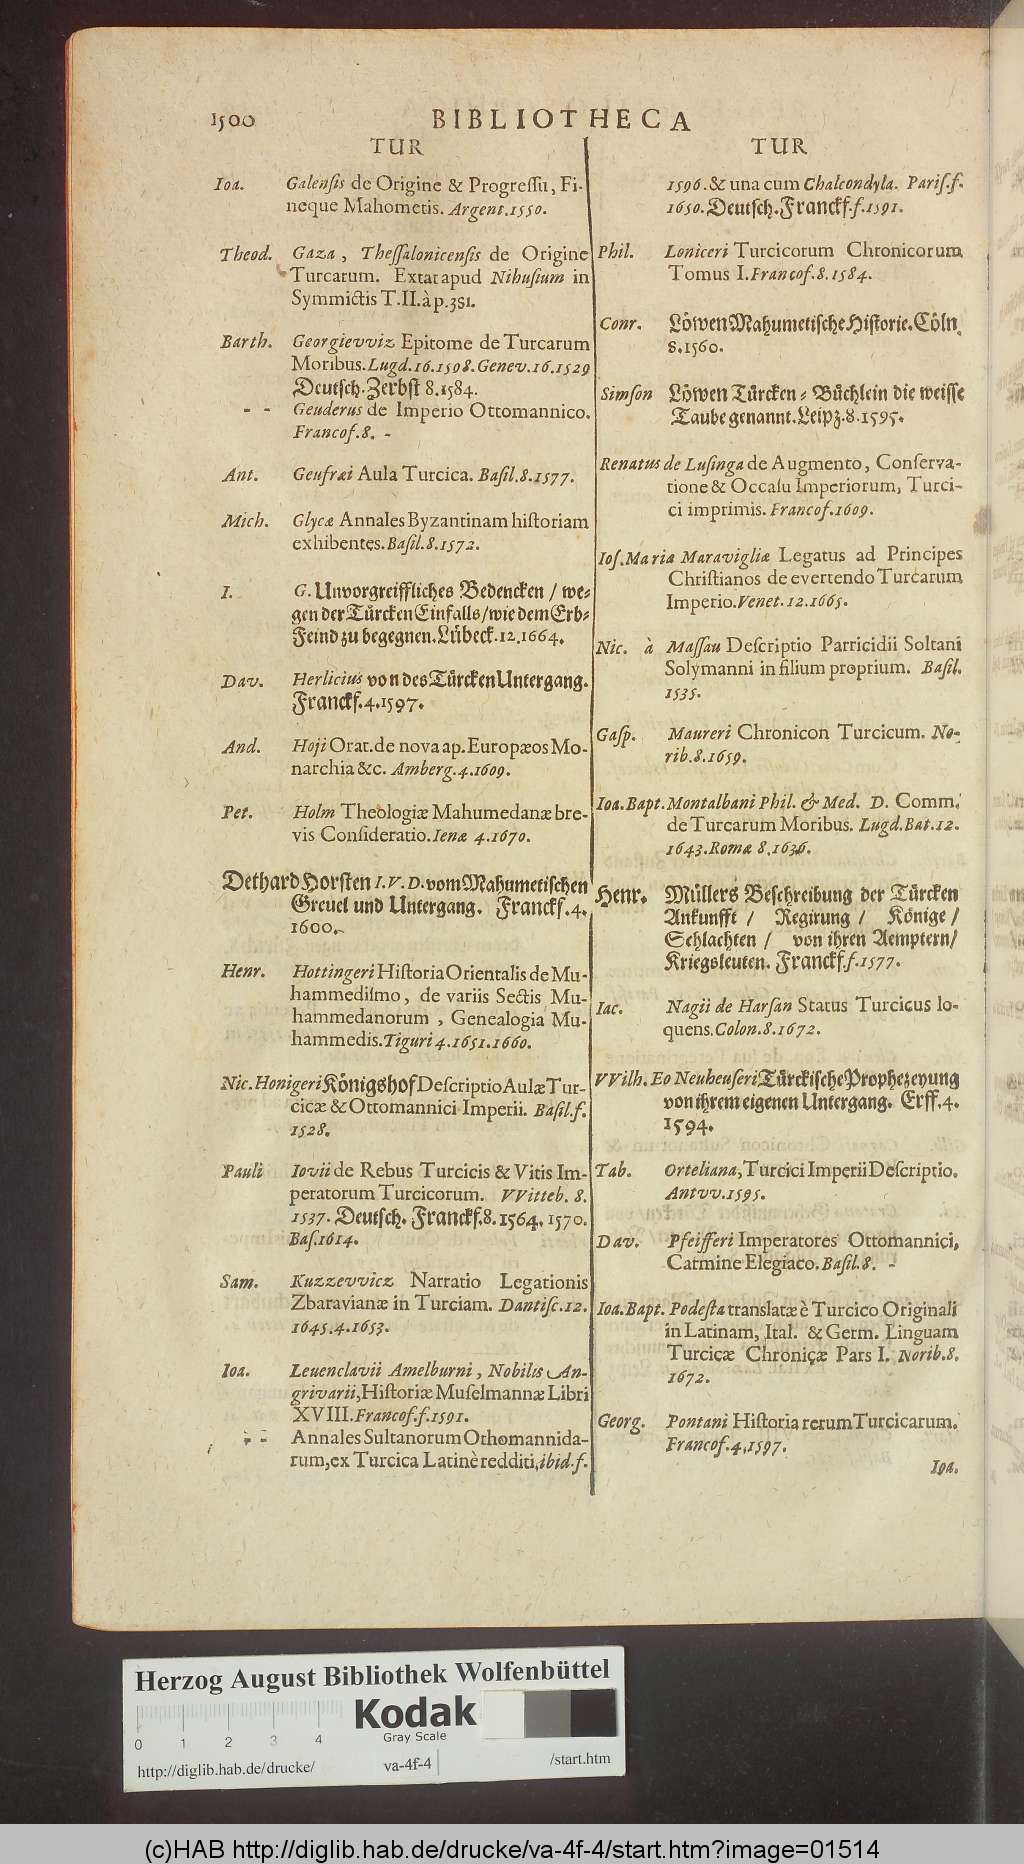 1500
BIBLIOTHECA
TUR
Ioa. Galenſis de Origine & Progreſſu, Fi-
neque Mahometis. Argent. 1550.
Theod. Gaza, Theſſalonicenſis de Origine
Turcarum. Extat apud Nihuſium in
Symmictis T. II. à p. 381.
Barth. Georgievviz Epitome de Turcarum
Moribus. Lugd. 16. 1598. Genev. 16. 1529
Deutſch. Zerbſt 8. 1584.
- - Geuderus de Imperio Ottomannico.
Francof. 8. -
Ant. Geufræi Aula Turcica. Baſil. 8. 1577.
Mich. Glycæ Annales Byzantinam hiſtoriam
exhibentes. Baſil. 8. 1572.
I. G. Unvorgreiffliches Bedencken / we-
gen der Türcken Einfalls / wie dem Erb-
Feind zu begegnen. Lübeck. 12. 1664.
Dav. Herlicius von des Türcken Untergang.
Franckf. 4. 1597.
And. Hoji Orat. de nova ap. Europæos Mo-
narchia &c. Amberg. 4. 1609.
Pet. Holm Theologiæ Mahumedanæ bre-
vis Conſideratio. Ienæ 4. 1670.
Dethard Horſten I. V. D. vom Mahumetiſchen
Greuel und Untergang. Franckf. 4.
1600.
Henr. Hottingeri Hiſtoria Orientalis de Mu-
hammediſmo, de variis Sectis Mu-
hammedanorum, Genealogia Mu-
hammedis. Tiguri 4. 1651. 1660.
Nic. Honigeri Königshof Deſcriptio Aulæ Tur-
cicæ & Ottomannici Imperii. Baſil. f.
1528.
Pauli Iovii de Rebus Turcicis & Vitis Im-
peratorum Turcicorum. VVitteb. 8.
1537. Deutſch. Franckf. 8. 1564. 1570.
Baſ. 1614.
Sam. Kuzzevvicz Narratio Legationis
Zbaravianæ in Turciam. Dantiſc. 12.
1645. 4. 1653.
Ioa. Leuenclavii Amelburni, Nobilis An-
grivarii, Hiſtoriæ Muſelmannæ Libri
XVIII. Francof. f. 1591.
- - Annales Sultanorum Othomannida-
rum, ex Turcica Latinè redditi, ibid. f.
TUR
1596. & una cum Chalcondyla. Pariſ. f.
1650. Deutſch. Franckf. f. 1591.
Phil. Loniceri Turcicorum Chronicorum
Tomus I. Francof. 8. 1584.
Conr. Löwen Mahumetiſche Hiſtorie. Cöln.
8. 1560.
Simſon Löwen Türcken - Büchlein die weiſſe
Taube genannt. Leipz. 8. 1595.
Renatus de Luſinga de Augmento, Conſerva-
tione & Occaſu Imperiorum, Turci-
ci imprimis. Francof. 1609.
Ioſ. Maria Maravigliæ Legatus ad Principes
Chriſtianos de evertendo Turcarum
Imperio. Venet. 12. 1665.
Nic. à Maſſau Deſcriptio Parricidii Soltani
Solymanni in filium proprium. Baſil.
1535.
Gaſp. Maureri Chronicon Turcicum. No-
rib. 8. 1659.
Ioa. Bapt. Montalbani Phil. & Med. D. Comm.
de Turcarum Moribus. Lugd. Bat. 12.
1643. Romæ 8. 1636.
Henr. Müllers Beſchreibung der Türcken
Ankunfft / Regirung / Könige /
Schlachten / von ihren Aemptern /
Kriegsleuten. Franckf. f. 1577.
Iac. Nagii de Harſan Status Turcicus lo-
quens. Colon. 8. 1672.
VVilh. Eo Neuheuſeri Türckiſche Prophezeyung
von ihrem eigenen Untergang. Erff. 4.
1594.
Tab. Orteliana, Turcici Imperii Deſcriptio.
Antvv. 1595.
Dav. Pfeifferi Imperatores Ottomannici,
Carmine Elegiaco. Baſil. 8. -
Ioa. Bapt. Podeſta translatæ è Turcico Originali
in Latinam, Ital. & Germ. Linguam
Turcicæ Chronicæ Pars I. Norib. 8.
1672.
Georg. Pontani Hiſtoria rerum Turcicarum.
Francof. 4. 1597.
Ioa.
Herzog August Bibliothek Wolfenbüttel
Kodak
Gray Scale
0 1 2 3 4
http://diglib.hab.de/drucke/ va-4f-4 /start.htm
(c)HAB http://diglib.hab.de/drucke/va-4f-4/start.htm?image=01514